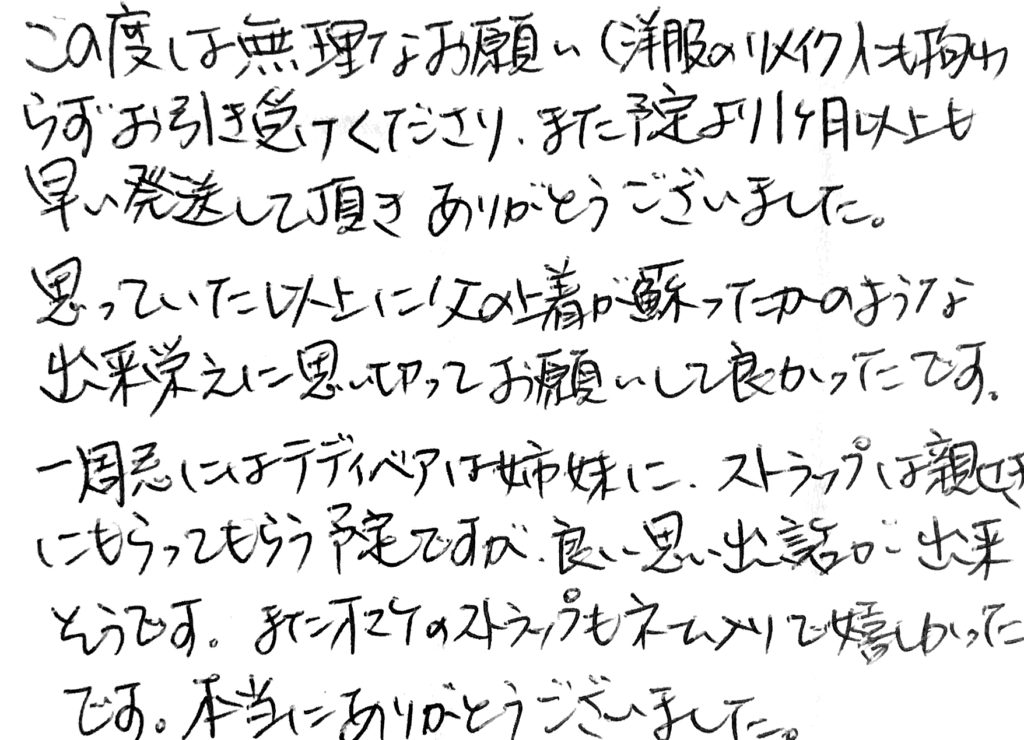 この度は無理なお願い(洋服のリメイク)にも拘わ
らずお引き受けくださり、また予定より1ヶ月以上も
早い発送して頂きありがとうございました。
思っていた以上に父の上着が蘇ったかのような
出来栄えに思い切ってお願いして良かったです。
一周忌にはテディベアは姉妹に、ストラップは親せき
にもらってもらう予定ですが、良い思い出話が出来
そうです。またオマケのストラップもネーム入りで嬉しかった
です。本当にありがとうございました。